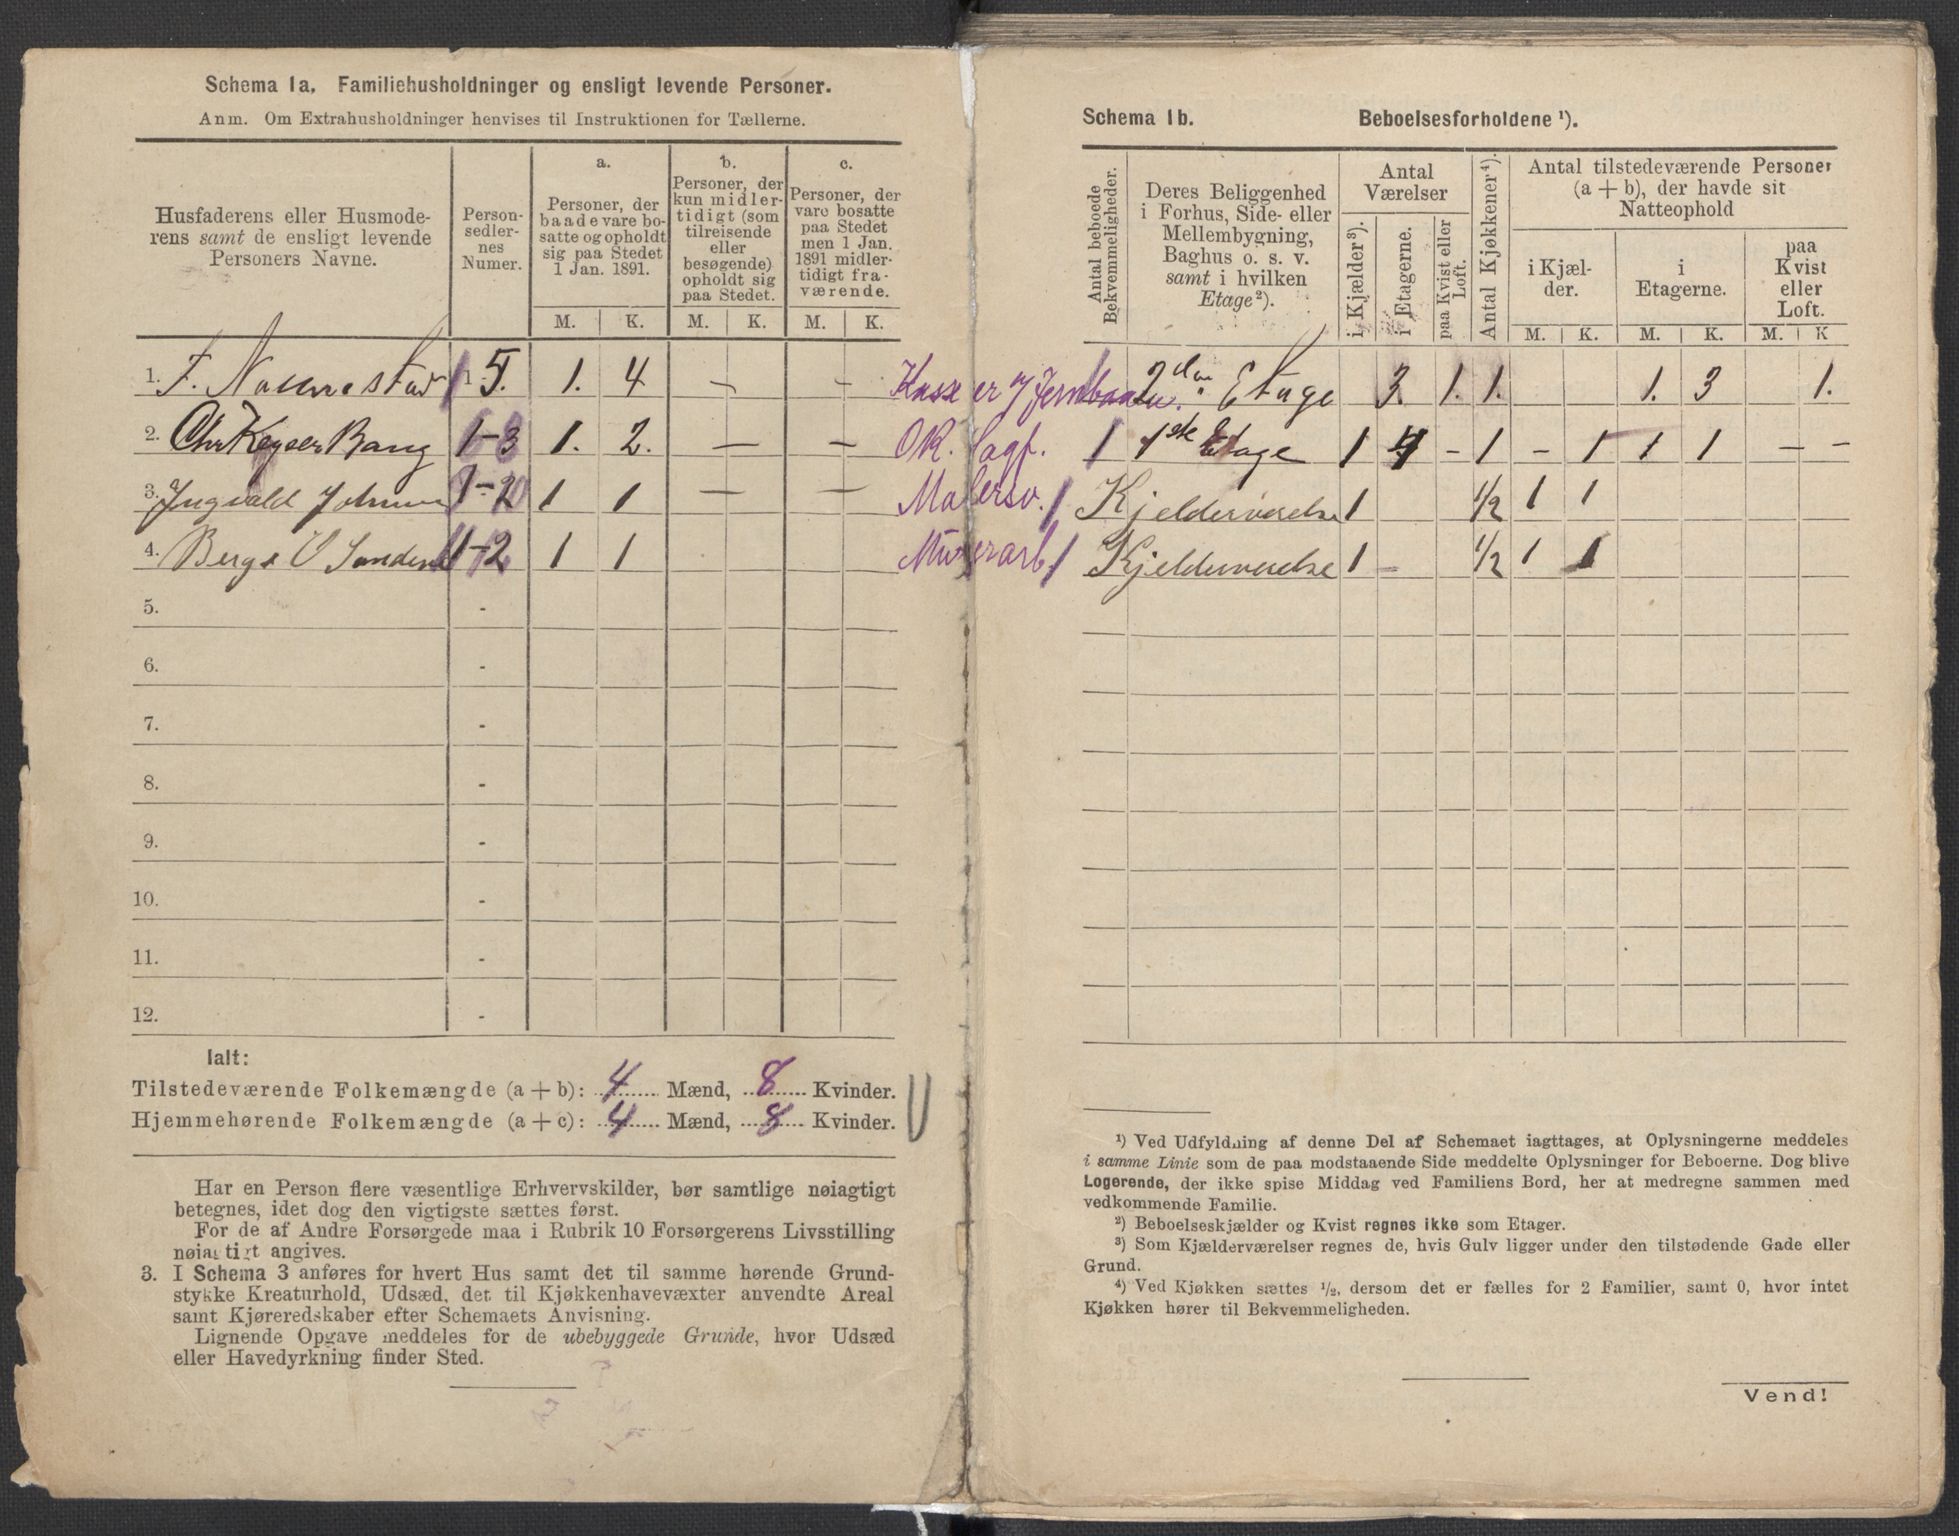 Schema 1a. Familiehusholdninger og ensligt levende Personer.
Anm. Om Extrahusholdninger henvises til Instruktionen for Tællerne.
Husfaderens eller Husmode-
rens samt de ensligt levende
Personers Navne.
Person-
sedler-
nes
Numer.
a.
Personer, der
baade vare bo-
satte og opholdt
sig paa Stedet
1 Jan. 1891.
b.
Personer, der
kun midler-
tidigt (som
tilreisende
eller
besøgende)
opholdt sig
paa Stedet.
c.
Personer, der
vare bosatte
paa Stedet
men 1 Jan.
1891 midler-
tidigt fra-
værende.
M. K. M. K. M. K.
1. F. 5. 1. 4 - -
2. Chr Keyser Bang 1-3 1. 2. — —
3. Ingvald 1-2 1 1 — —
4. 1-2 1 1
5. -
6. -
7. -
8. -
9. -
10. -
11. -
12. -
Ialt:
Tilstedeværende Folkemængde (a + b): 4 Mænd, 8 Kvinder.
Hjemmehørende Folkemængde (a + c): 4 Mænd, 8 Kvinder.
Har en Person flere væsentlige Erhvervskilder, bør samtlige nøiagtigt
betegnes, idet dog den vigtigste sættes først.
For de af Andre Forsørgede maa i Rubrik 10 Forsørgerens Livsstilling
nøiagtigt angives.
3. I Schema 3 anføres for hvert Hus samt det til samme hørende Grund-
stykke Kreaturhold, Udsæd, det til Kjøkkenhavevæxter anvendte Areal
samt Kjøreredskaber efter Schemaets Anvisning.
Lignende Opgave meddeles for de ubebyggede Grunde, hvor Udsæd
eller Havedyrkning finder Sted.
Schema 1b. Beboelsesforholdene ¹).
Antal beboede
Bekvemmeligheder.
Deres Beliggenhed
i Forhus, Side- eller
Mellembygning,
Baghus o. s. v.
samt i hvilken
Etage ²).
Antal
Værelser
i Kjælder ³).
i Etagerne.
paa Kvist eller
Loft.
Antal Kjøkkener ⁴).
Antal tilstedeværende Personer
(a + b), der havde sit
Natteophold
i Kjæl-
der.
i
Etagerne.
paa
Kvist
eller
Loft.
M. K. M. K. M. K
Kasserer v/ Jernbanen. 1 2den Etage 3 1. 1. 1. 3 1.
OR. Sagf. 1 1ste Etage 1 4 - 1 - 1 1 1 - -
Malersv. 1 Kjelderverelse 1 1/2 1 1
Murerarb. 1 Kjelderverelse 1 - 1/2 1 1
¹) Ved Udfyldning af denne Del af Schemaet iagttages, at Oplysningerne meddeles
i samme Linie som de paa modstaaende Side meddelte Oplysninger for Beboerne. Dog blive
Logerende, der ikke spise Middag ved Familiens Bord, her at medregne sammen med
vedkommende Familie.
²) Beboelseskjælder og Kvist regnes ikke som Etager.
³) Som Kjælderværelser regnes de, hvis Gulv ligger under den tilstødende Gade eller
Grund.
⁴) Ved Kjøkken sættes 1/2, dersom det er fælles for 2 Familier, samt 0, hvor intet
Kjøkken hører til Bekvemmeligheden.
Vend!